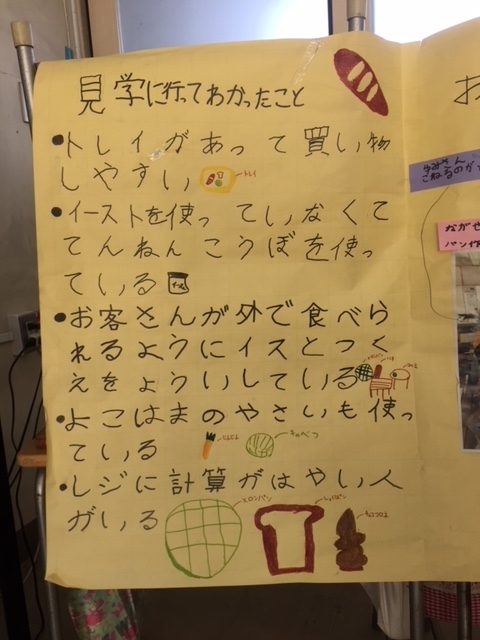 見学に行ってわかったこと
●トレイがあって買い物
しやすい
トレイ
●イーストを使っていなくて
てんねんこうぼを使っ
ている
●お客さんが外で食べら
れるようにイスとつく
えをよういしている
●よこはまのやさいも使っ
ている
にんじん
キャベツ
●レジに計算がはやい人
がいる
メロンパン
チョココロネ
お
こねるのが
ながせ
パン作